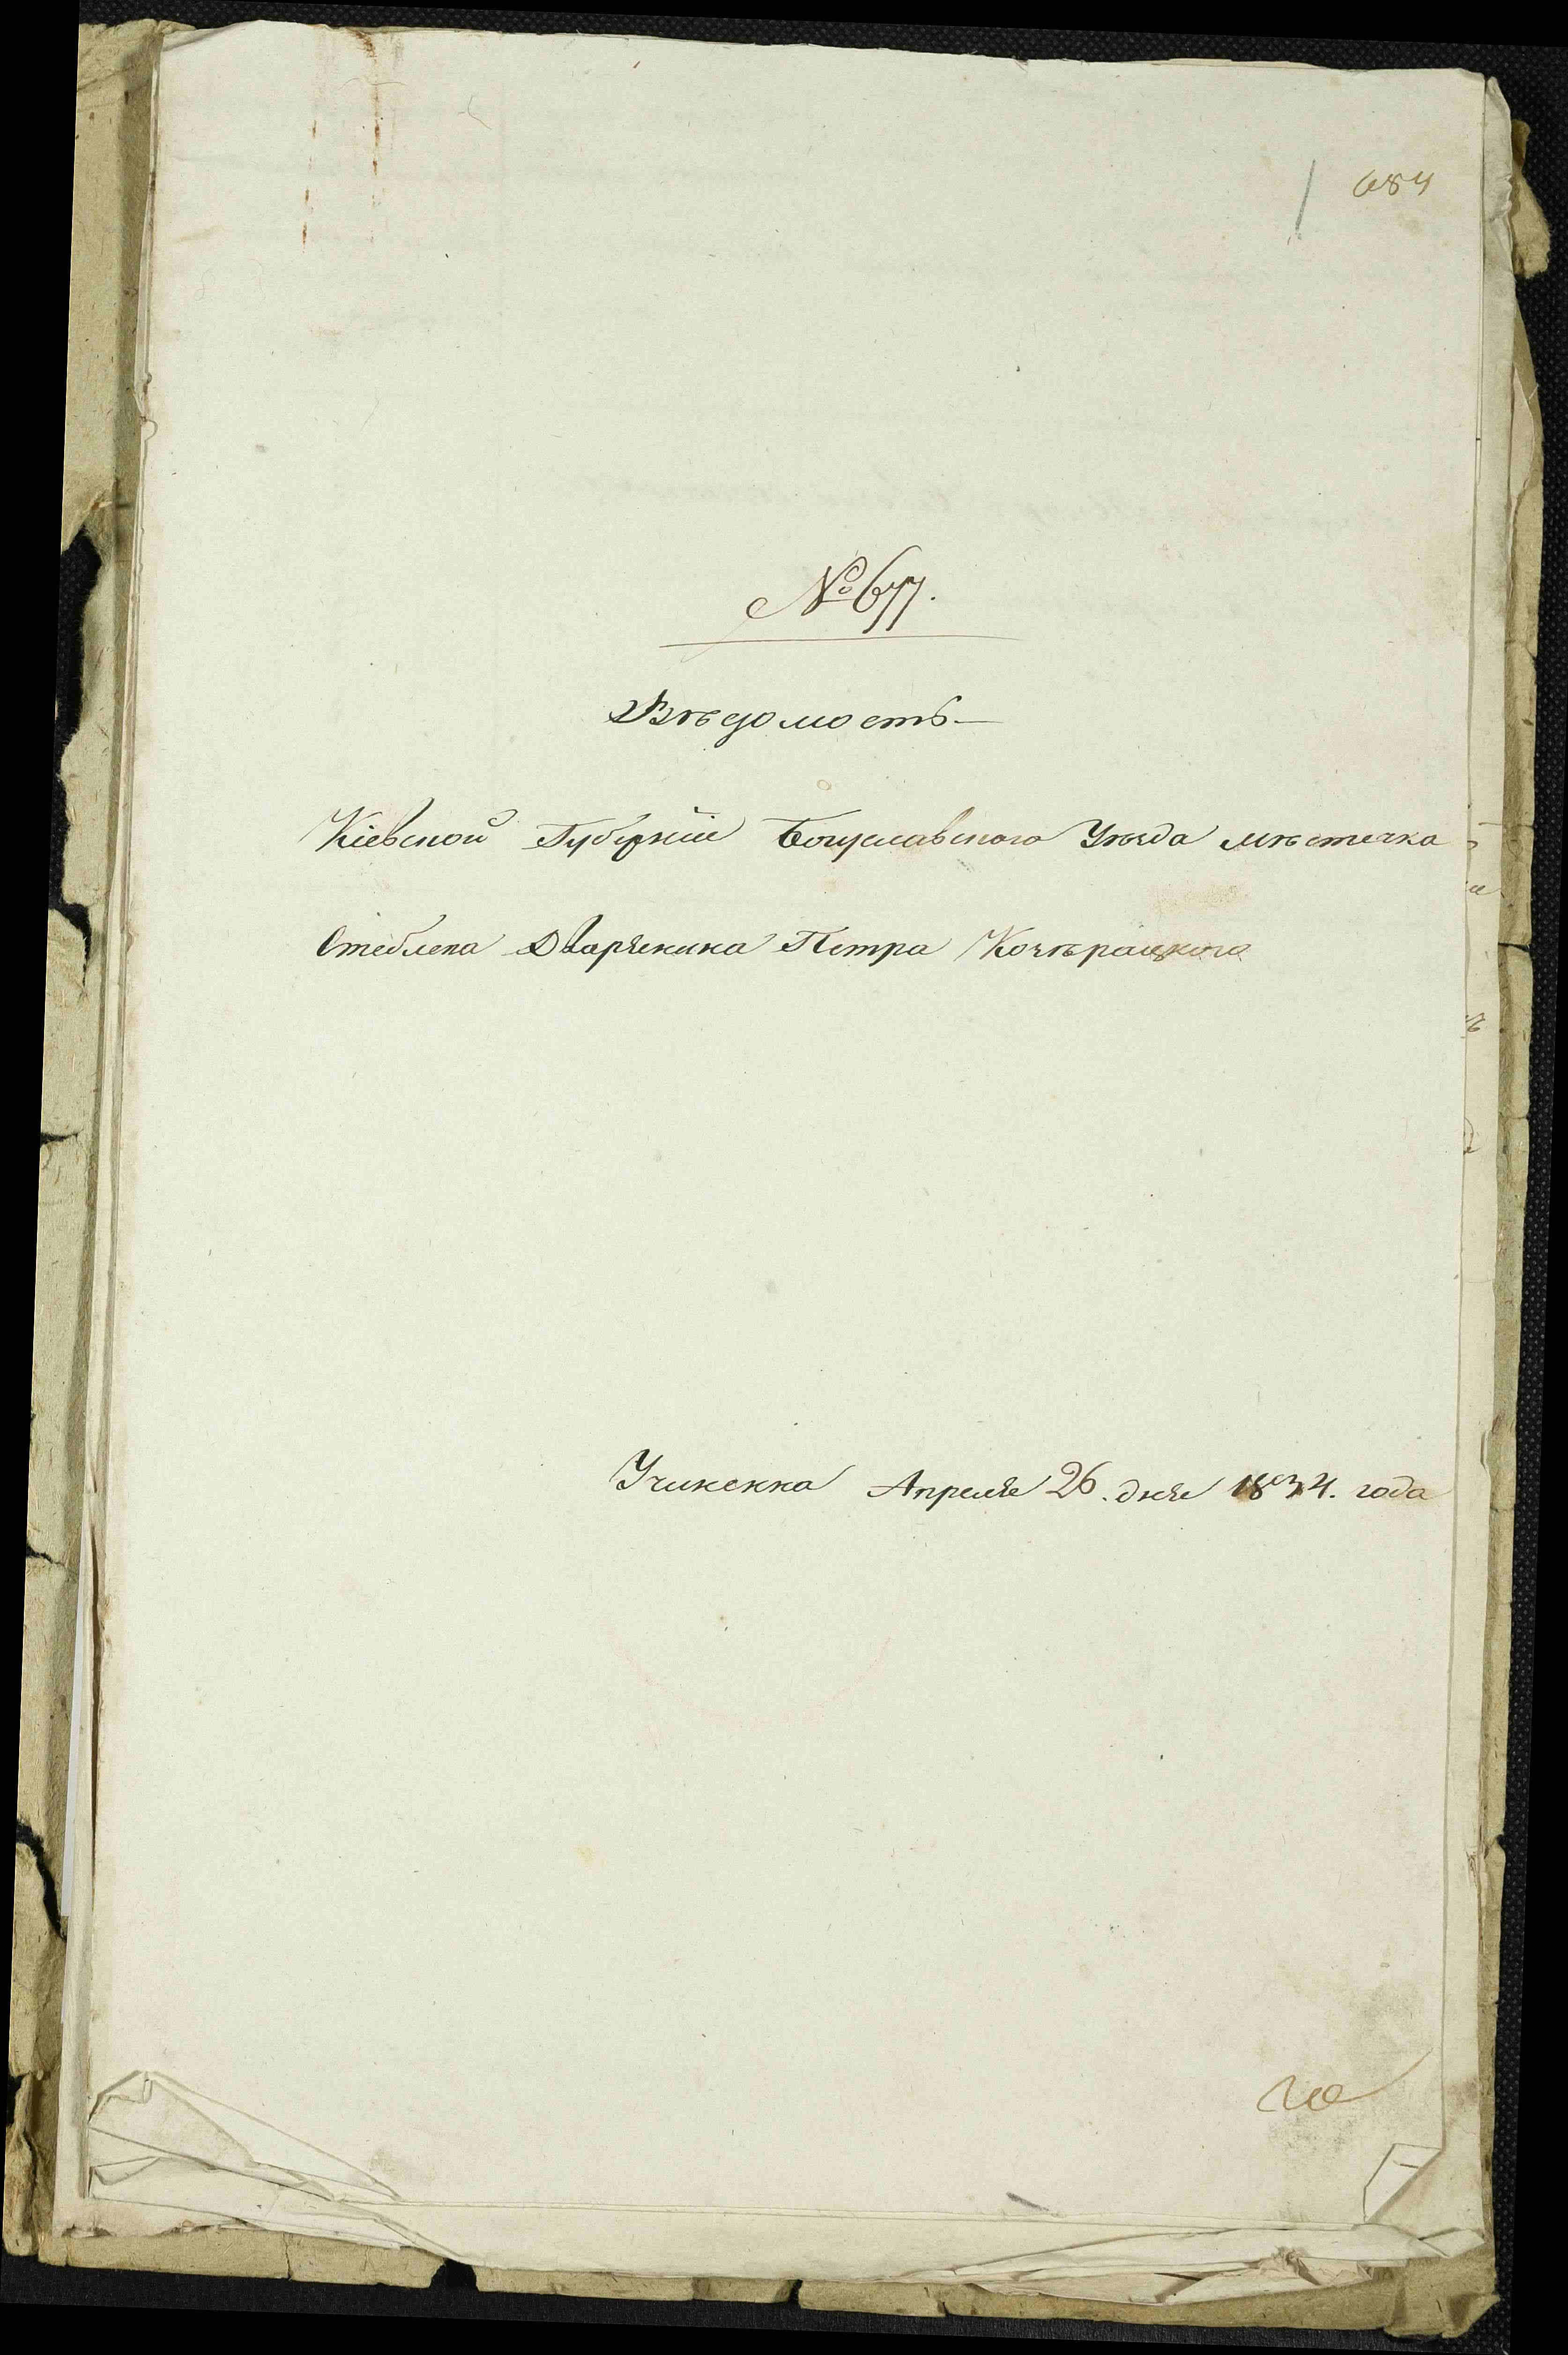 684
№ 677.
Вѣдомость
Кіевской Губерніи Богуславского Уѣзда мѣстечка
Стеблева Дварянина Петра Кочѣрацкого
Учиненна Апреля 26. дня 1834. года